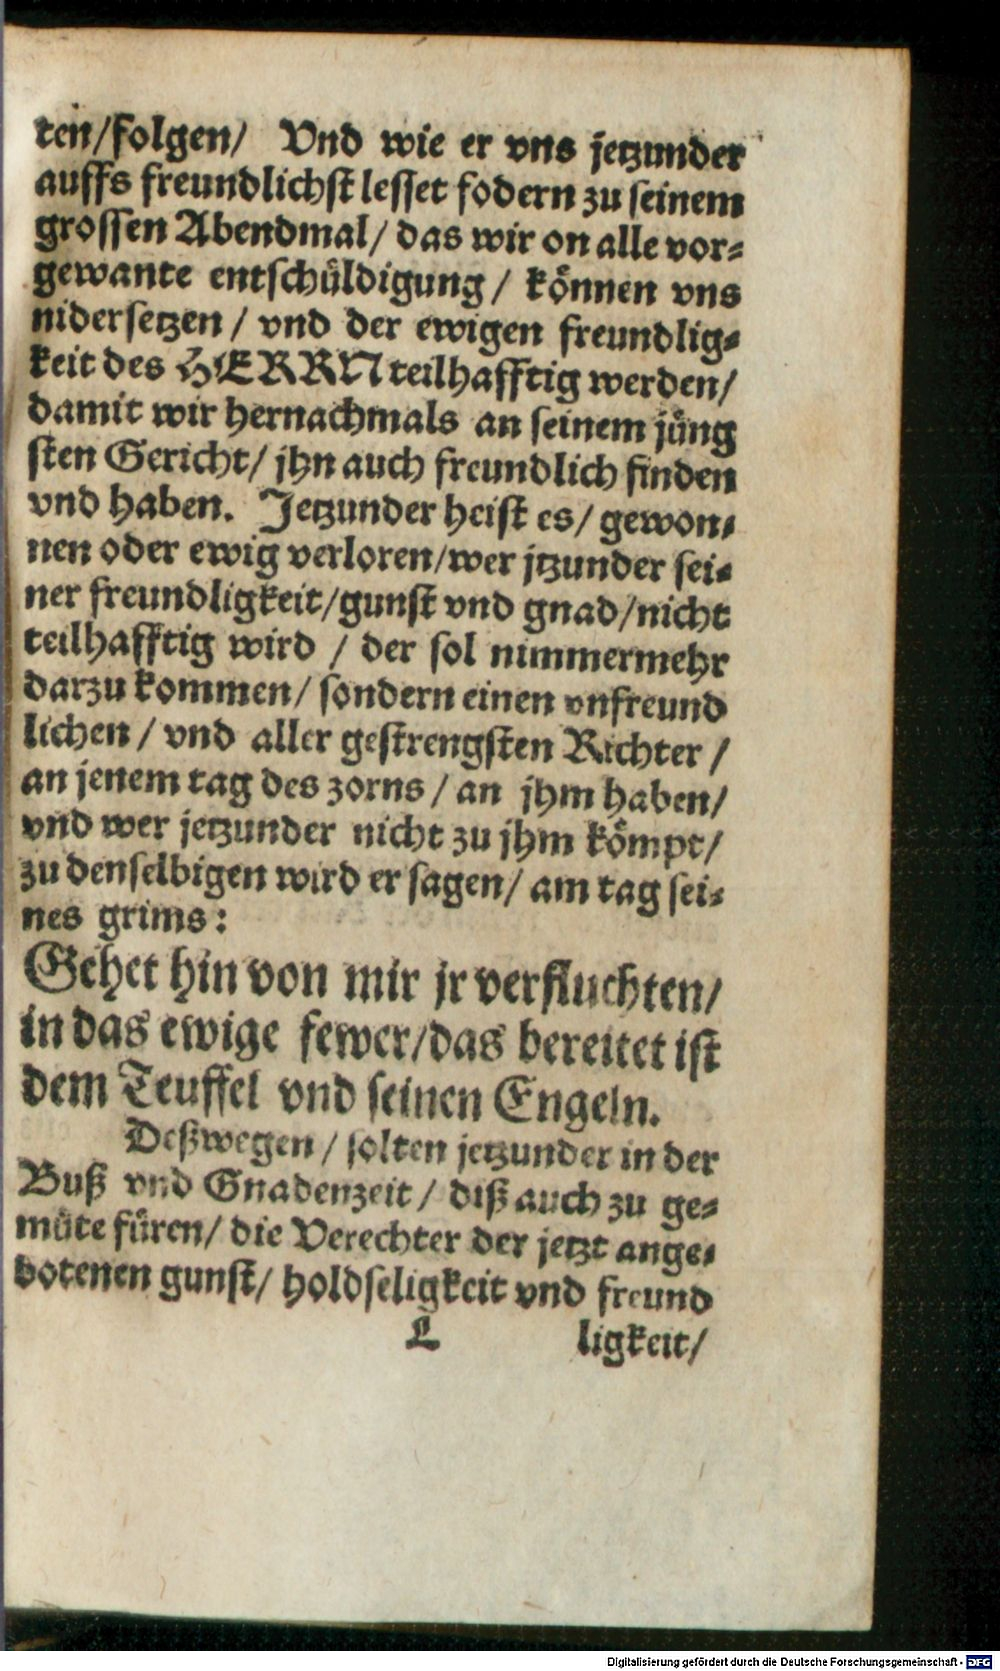 ten/folgen/ Vnd wie er vns jetzunder
auffs freundlichst lesset fodern zu seinem
grossen Abendmal/ das wir on alle vor-
gewante entschüldigung / können vns
nidersetzen / vnd der ewigen freundlig-
keit des HERRN teilhafftig werden/
damit wir hernachmals an seinem jüng
sten Gericht/ jhn auch freundlich finden
vnd haben. Jetzunder heist es/ gewon-
nen oder ewig verloren/wer jtzunder sei-
ner freundligkeit/gunst vnd gnad/nicht
teilhafftig wird / der sol nimmermehr
darzu kommen/ sondern einen vnfreund
lichen / vnd aller gestrengsten Richter /
an jenem tag des zorns / an jhm haben/
vnd wer jetzunder nicht zu jhm kömpt/
zu denselbigen wird er sagen/ am tag sei-
nes grims:
Gehet hin von mir jr verfluchten/
in das ewige fewer/das bereitet ist
dem Teuffel vnd seinen Engeln.
Deßwegen / solten jetzunder in der
Buß vnd Gnadenzeit / diß auch zu ge-
müte füren/ die Verechter der jetzt ange-
botenen gunst/ holdseligkeit vnd freund
L ligkeit/
Digitalisierung gefördert durch die Deutsche Forschungsgemeinschaft - DFG